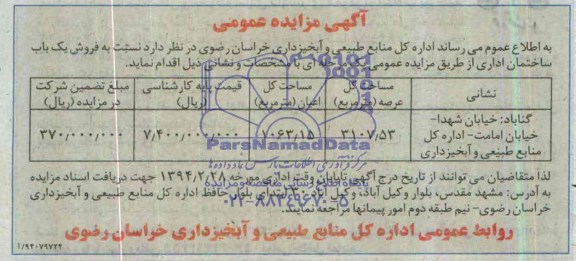 آگهی مزایده عمومی
به اطلاع عموم می رساند اداره کل منابع طبیعی و آبخیزداری خراسان رضوی در نظر دارد نسبت به فروش یک باب
ساختمان اداری از طریق مزایده عمومی یک مرحله ای با مشخصات و نشانی ذیل اقدام نماید.
نشانی	مساحت کل عرصه (مترمربع)	مساحت کل اعیان (مترمربع)	قیمت پایه کارشناسی (ریال)	مبلغ تضمین شرکت در مزایده (ریال)
گناباد: خیابان شهدا- خیابان امامت- اداره کل منابع طبیعی و آبخیزداری	۳۱۰۷,۵۳	۷۰۶۳,۱۵	۷,۴۰۰,۰۰۰,۰۰۰	۳۷۰,۰۰۰,۰۰۰
ParsNamadData
مرکز فرآوری اطلاعات پارس نماد داده ها
پایگاه اطلاع رسانی مناقصه و مزایده
۰۲۱-۸۸۳۴۹۶۷۰-۵
لذا متقاضیان می توانند از تاریخ درج آگهی تا پایان وقت اداری مورخه ۱۳۹۴/۲/۲۸ جهت دریافت اسناد مزایده
به آدرس: مشهد مقدس، بلوار وکیل آباد، وکیل آباد ۲۰، ابتدای بلوار حافظ اداره کل منابع طبیعی و آبخیزداری
خراسان رضوی- نیم طبقه دوم امور پیمانها مراجعه نمایند.
روابط عمومی اداره کل منابع طبیعی و آبخیزداری خراسان رضوی
۱/۹۴۰۷۹۷۲۲